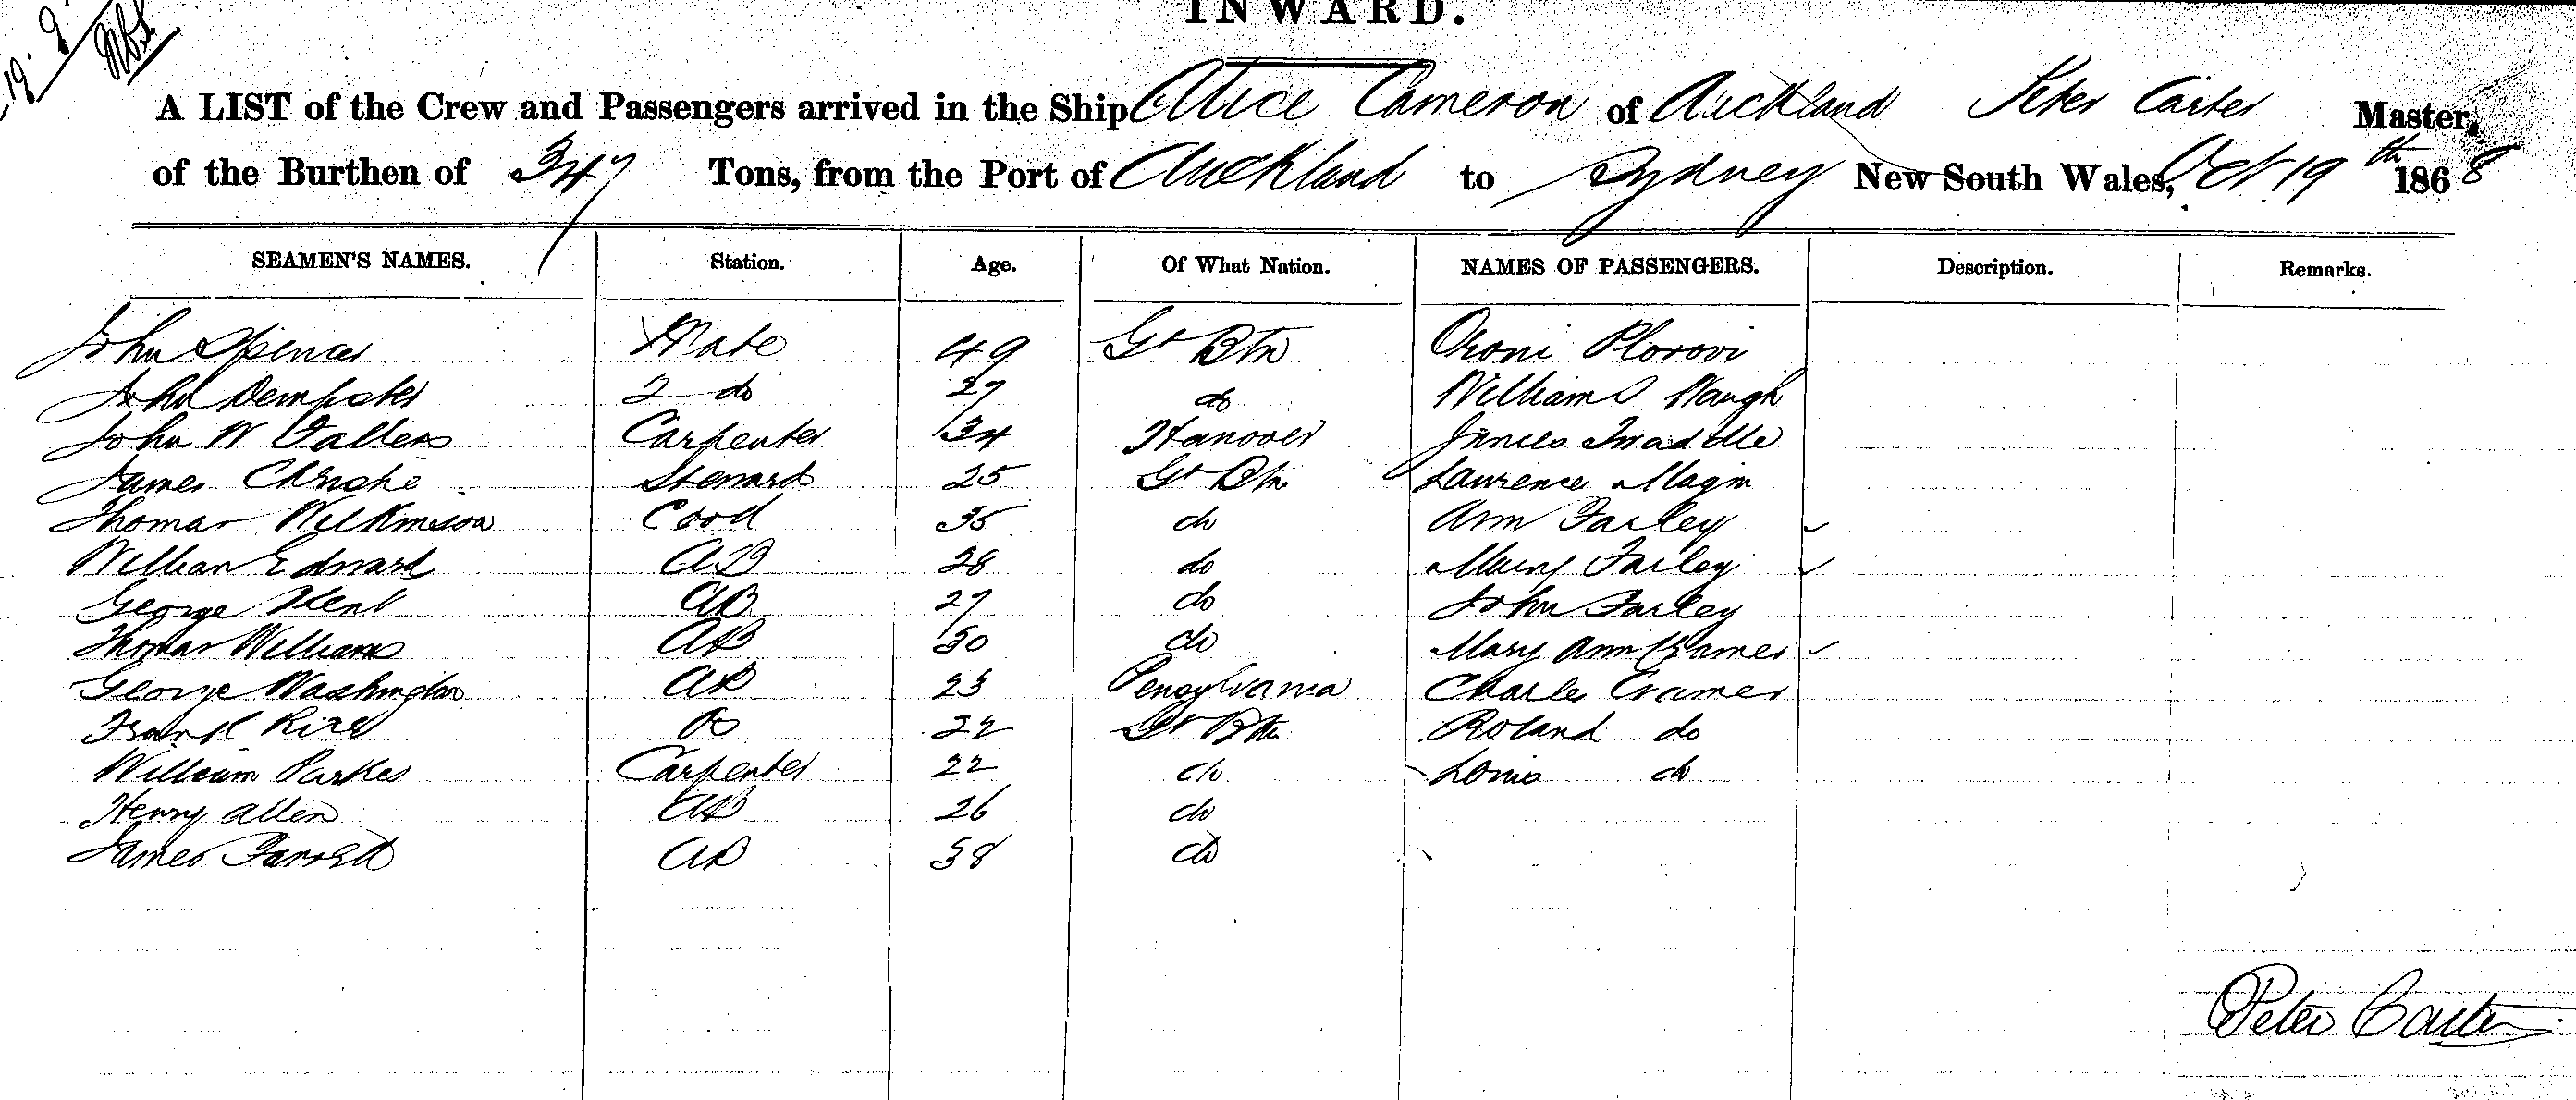 INWARD.
A LIST of the Crew and Passengers arrived in the Ship Alice Cameron of Auckland Peter Carter Master,
of the Burthen of 347 Tons, from the Port of Auckland to Sydney New South Wales, Oct 19th 1868
SEAMEN'S NAMES. Station. Age. Of What Nation. NAMES OF PASSENGERS. Description. Remarks.
John Spencer Mate 49 Gt Btn Oroni Plorovi
John Dempster 2 do 27 do William Waugh
John W Vallers Carpenter 34 Hanover James Twaddle
James Christie Steward 25 Gt Btn Laurence Magin
Thomas Wilkinson Cook 35 do Ann Farley
William Edward AB 28 do Mary Farley
George Kent AB 27 do John Farley
Thomas Williams AB 30 do Mary Ann Cramer
George Washington AB 23 Pensylvania Charles Cramer
Frank Rice 22 Gt Btn Roland do
William Parkes Carpenter 22 do Louis do
Henry Allen AB 26 do
James Farrell AB 38 do
Peter Carter